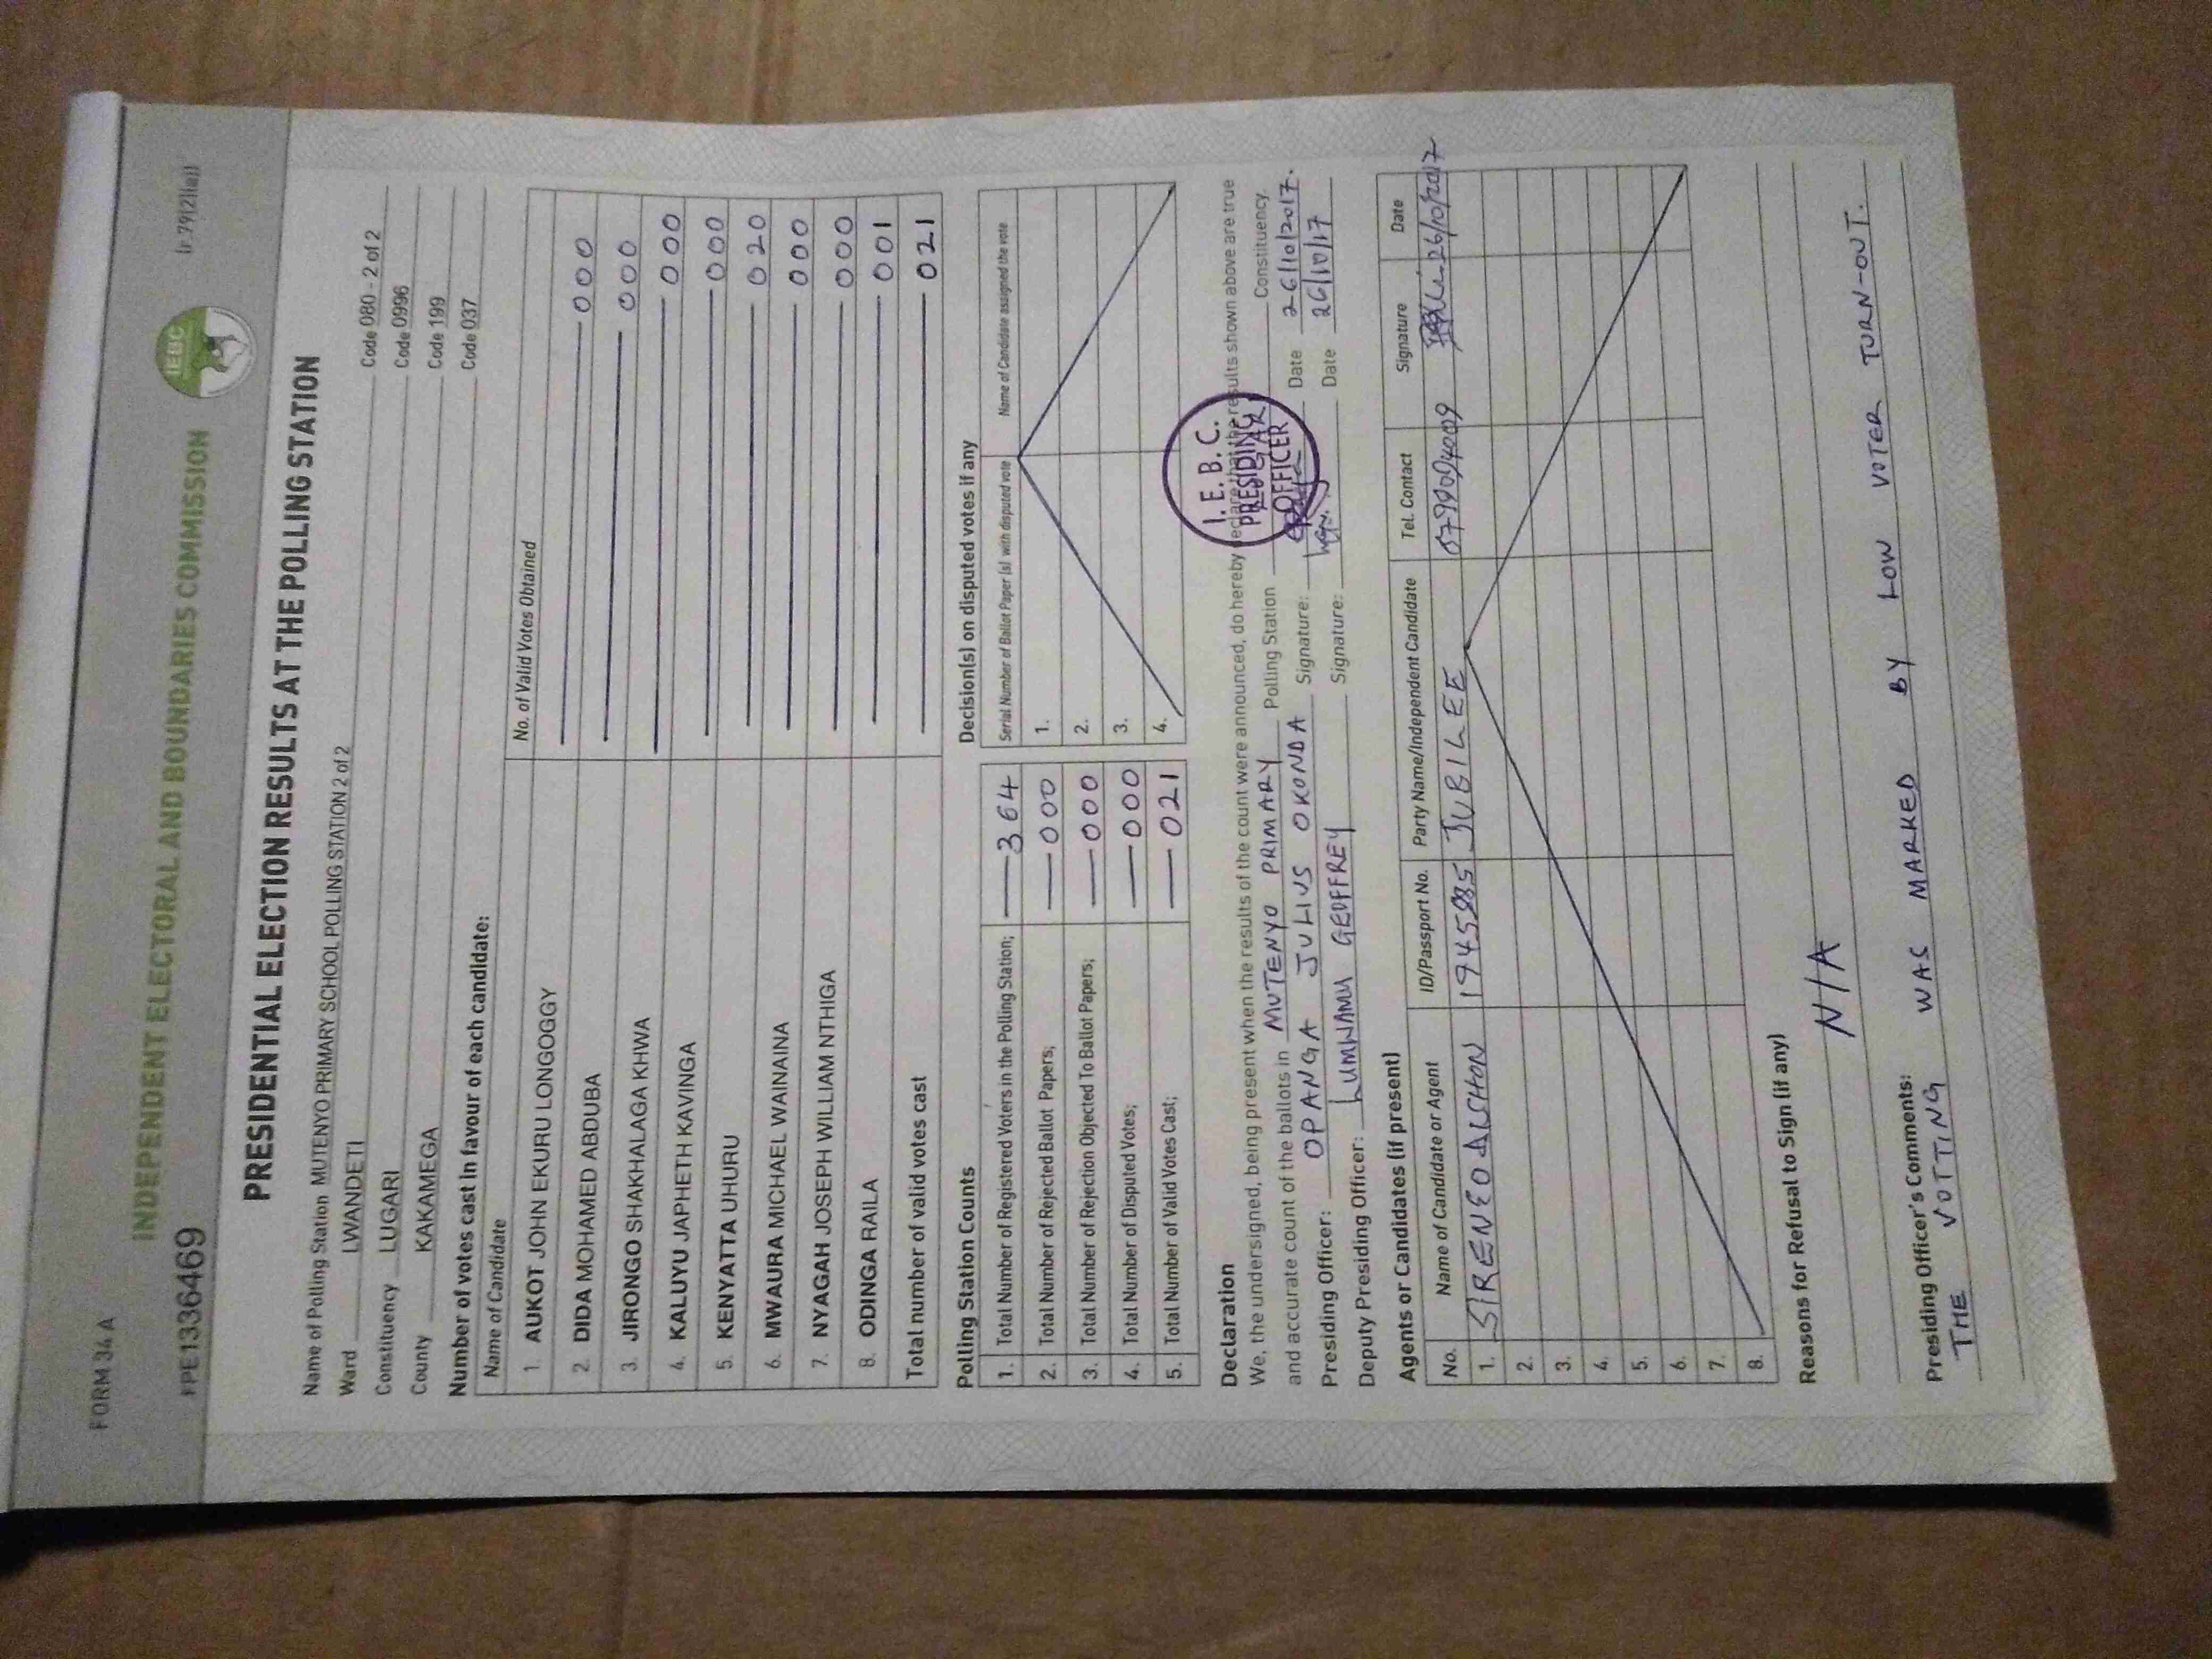 FORM 34 A
(r.79(2)(a))
INDEPENDENT ELECTORAL AND BOUNDARIES COMMISSION
IEBC
PPE1336469
PRESIDENTIAL ELECTION RESULTS AT THE POLLING STATION
Name of Polling Station MUTENYO PRIMARY SCHOOL POLLING STATION 2 of 2 Code 080 - 2 of 2
Ward LWANDETI Code 0996
Constituency LUGARI Code 199
County KAKAMEGA Code 037
Number of votes cast in favour of each candidate:
Name of Candidate No. of Valid Votes Obtained
1. AUKOT JOHN EKURU LONGOGGY 000
2. DIDA MOHAMED ABDUBA 000
3. JIRONGO SHAKHALAGA KHWA 000
4. KALUYU JAPHETH KAVINGA 000
5. KENYATTA UHURU 020
6. MWAURA MICHAEL WAINAINA 000
7. NYAGAH JOSEPH WILLIAM NTHIGA 000
8. ODINGA RAILA 001
Total number of valid votes cast 021
Polling Station Counts
1. Total Number of Registered Voters in the Polling Station; 364
2. Total Number of Rejected Ballot Papers; 000
3. Total Number of Rejection Objected To Ballot Papers; 000
4. Total Number of Disputed Votes; 000
5. Total Number of Valid Votes Cast; 021
Decision(s) on disputed votes if any
Serial Number of Ballot Paper (s) with disputed vote Name of Candidate assigned the vote
1.
2.
3.
4.
Declaration
We, the undersigned, being present when the results of the count were announced, do hereby declare that the results shown above are true
and accurate count of the ballots in MUTENYO PRIMARY Polling Station Constituency.
Presiding Officer: OPANGA JULIUS OKONDA Signature: Date 26/10/2017.
Deputy Presiding Officer: LUMWAMU GEOFFREY Signature: Date 26/10/17
I. E. B. C.
PRESIDING
OFFICER
Agents or Candidates (if present)
No. Name of Candidate or Agent ID/Passport No. Party Name/Independent Candidate Tel. Contact Signature Date
1. SIRENEO JUBILEE 26/10/2017
2.
3.
4.
5.
6.
7.
8.
Reasons for Refusal to Sign (if any)
N/A
Presiding Officer's Comments:
THE VOTTING WAS MARKED BY LOW VOTER TURN-OUT.